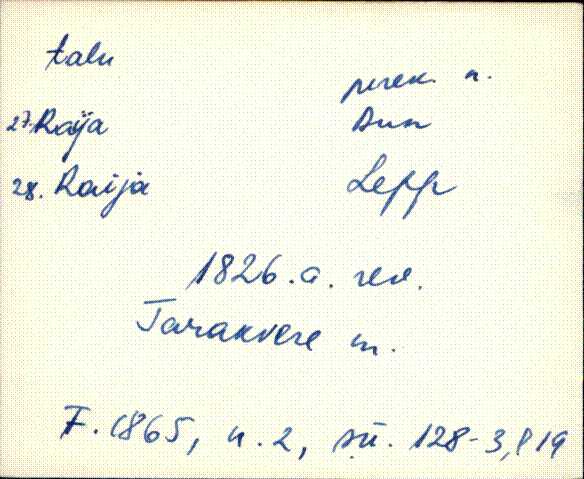 talu perek. n.
27. Raija Sun
28. Raija Lepp
1826. a. rev.
Tarakvere m.
F. 1865, n. 2, sü. 128-3, l 19